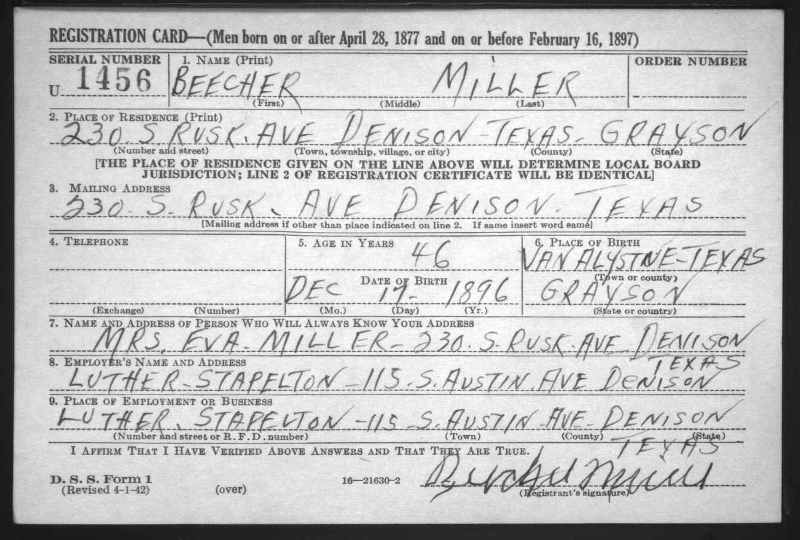 REGISTRATION CARD—(Men born on or after April 28, 1877 and on or before February 16, 1897)
SERIAL NUMBER 1. NAME (Print) ORDER NUMBER
U 1456 BEECHER MILLER
(First) (Middle) (Last)
2. PLACE OF RESIDENCE (Print)
230. S. RUSK. AVE DENISON - TEXAS - GRAYSON
(Number and street) (Town, township, village, or city) (County) (State)
[THE PLACE OF RESIDENCE GIVEN ON THE LINE ABOVE WILL DETERMINE LOCAL BOARD
JURISDICTION; LINE 2 OF REGISTRATION CERTIFICATE WILL BE IDENTICAL]
3. MAILING ADDRESS
230. S. RUSK. AVE DENISON. TEXAS
[Mailing address if other than place indicated on line 2. If same insert word same]
4. TELEPHONE 5. AGE IN YEARS 6. PLACE OF BIRTH
46 VAN ALYSTNE - TEXAS
(Town or county)
DATE OF BIRTH
DEC 17 - 1896 GRAYSON
(Exchange) (Number) (Mo.) (Day) (Yr.) (State or country)
7. NAME AND ADDRESS OF PERSON WHO WILL ALWAYS KNOW YOUR ADDRESS
MRS. EVA. MILLER - 230. S. RUSK. AVE DENISON
TEXAS
8. EMPLOYER'S NAME AND ADDRESS
LUTHER - STAPELTON - 115. S. AUSTIN AVE DENISON
9. PLACE OF EMPLOYMENT OR BUSINESS
LUTHER. STAPELTON - 115 - S. AUSTIN - AVE - DENISON
(Number and street or R. F. D. number) (Town) (County) (State)
TEXAS
I AFFIRM THAT I HAVE VERIFIED ABOVE ANSWERS AND THAT THEY ARE TRUE.
Beecher Miller
D. S. S. Form 1
(Revised 4-1-42) (over) 16—21630-2 (Registrant's signature)